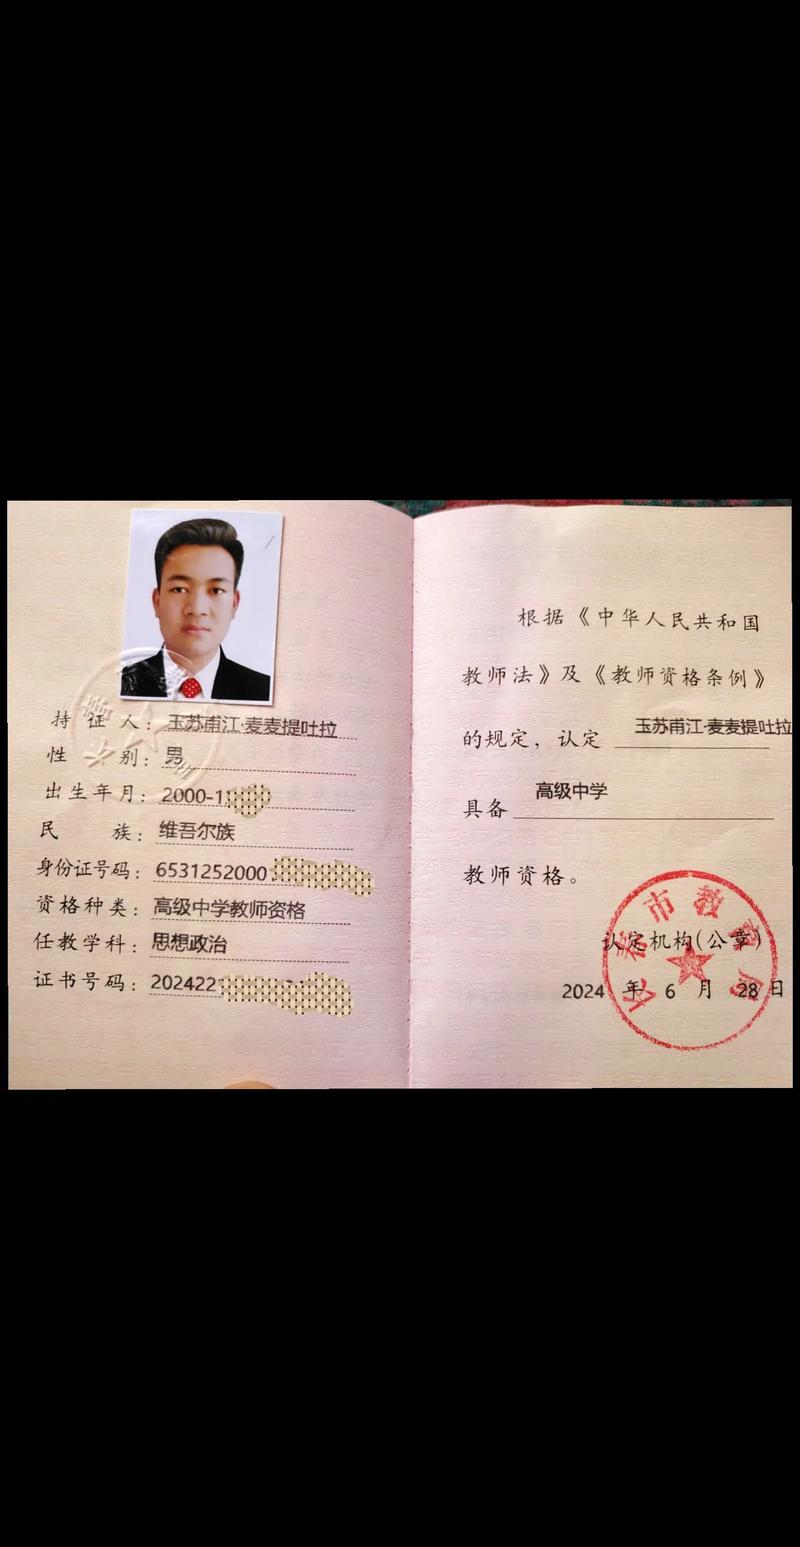 持证人：玉苏甫江·麦麦提吐拉
性别：男
出生年月：2000-1
民族：维吾尔族
身份证号码：6531252000
资格种类：高级中学教师资格
任教学科：思想政治
证书号码：202422
根据《中华人民共和国
教师法》及《教师资格条例》
的规定，认定 玉苏甫江·麦麦提吐拉
具备 高级中学
教师资格。
长春市教育局
认定机构(公章)
2024 年 6 月 28 日